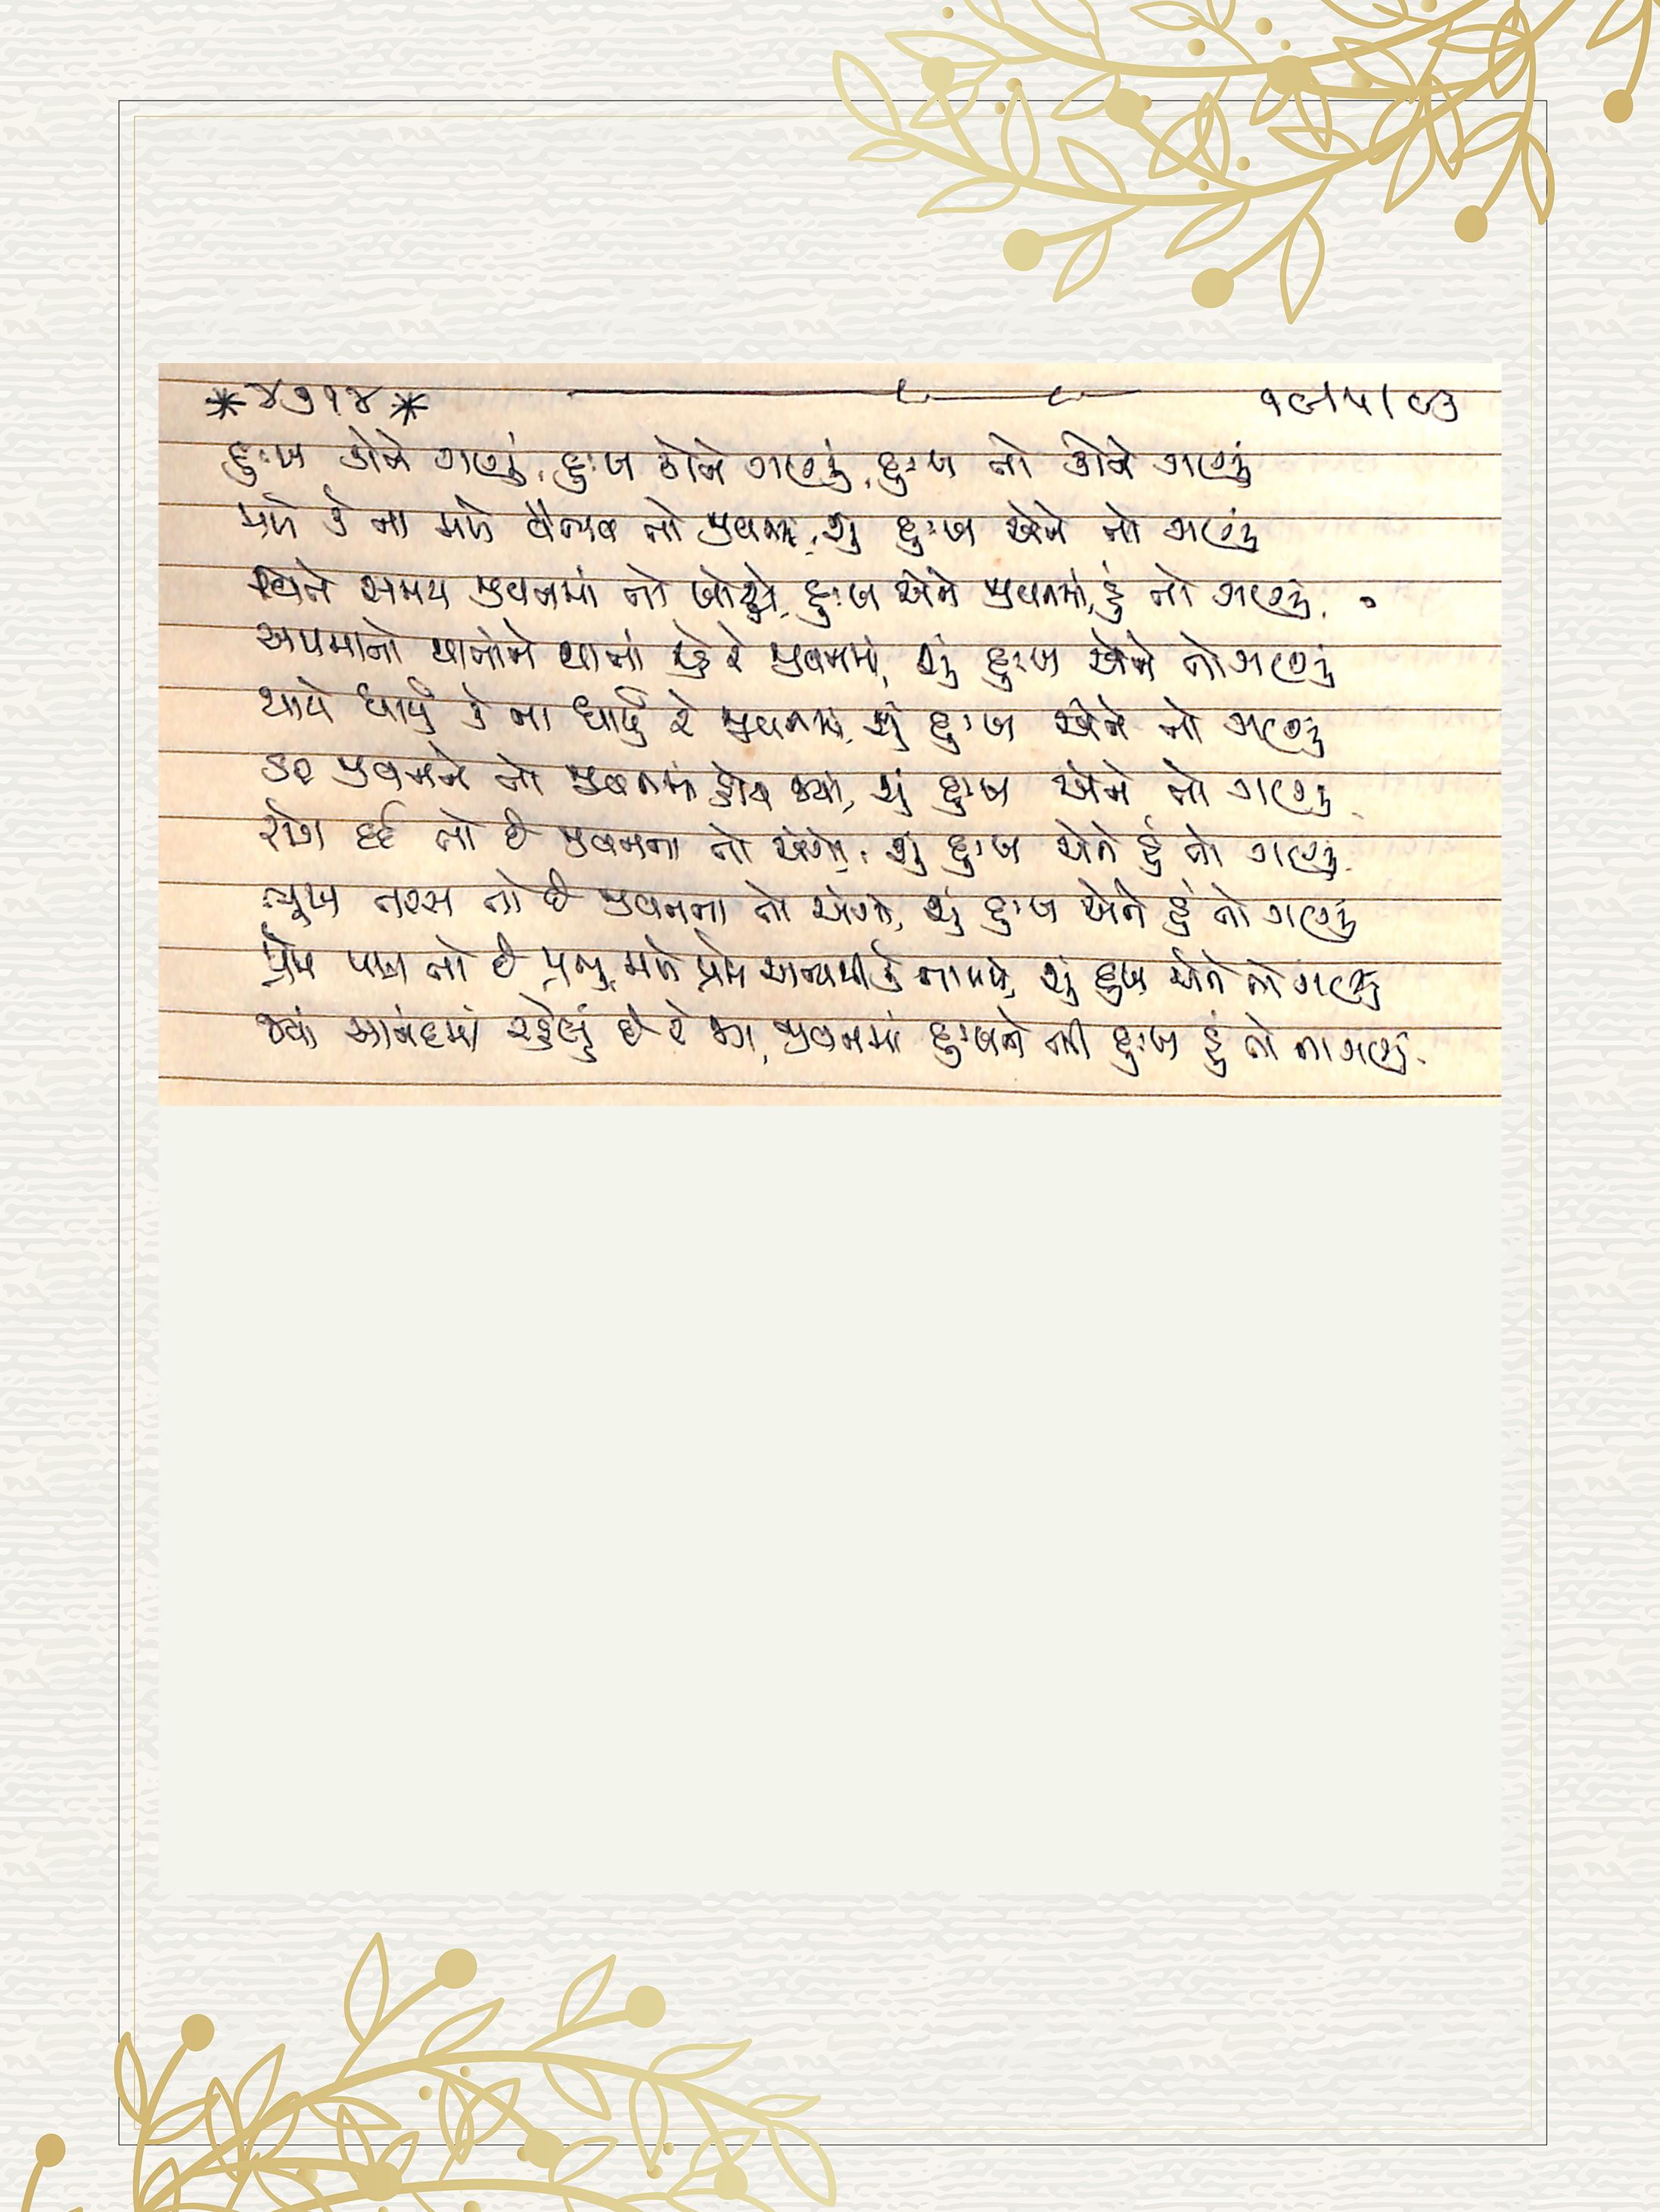 *૪૭૧૪* ૧૯/૫/૯૩
દુઃખ કોને ગણું, દુઃખ કોને ગણું, દુઃખ તો કોને ગણું
મળે કે ના મળે વૈભવ તો જીવનમાં, શું દુઃખ એને તો ગણું
સમય જીવનમાં તો જોશે, દુઃખ એને જીવનમાં, હું તો ગણું
અપમાનો થાતાંને થાતાં રહે રે જીવનમાં, શું દુઃખ એને તો ગણું
થાયે ધાર્યું કે ના ધાર્યું રે જીવનમાં, શું દુઃખ એને તો ગણું
ડર જીવનને તો જીવનમાં હોય જ્યાં, શું દુઃખ એને તો ગણું
રોગ દર્દ તો છે જીવનના તો અંગો, શું દુઃખ એને હું તો ગણું
ભૂખ તરસ તો છે જીવનના તો અંગો, શું દુઃખ એને હું તો ગણું
પ્રેમ પાત્ર તો છે પ્રભુ, મળે પ્રેમ અન્યથી કે ના મળે, શું દુઃખ એને તો ગણું
જ્યાં આનંદમાં રહેવું છે રે જગ જીવનમાં દુઃખને ભી દુઃખ હું તો ના ગણું.